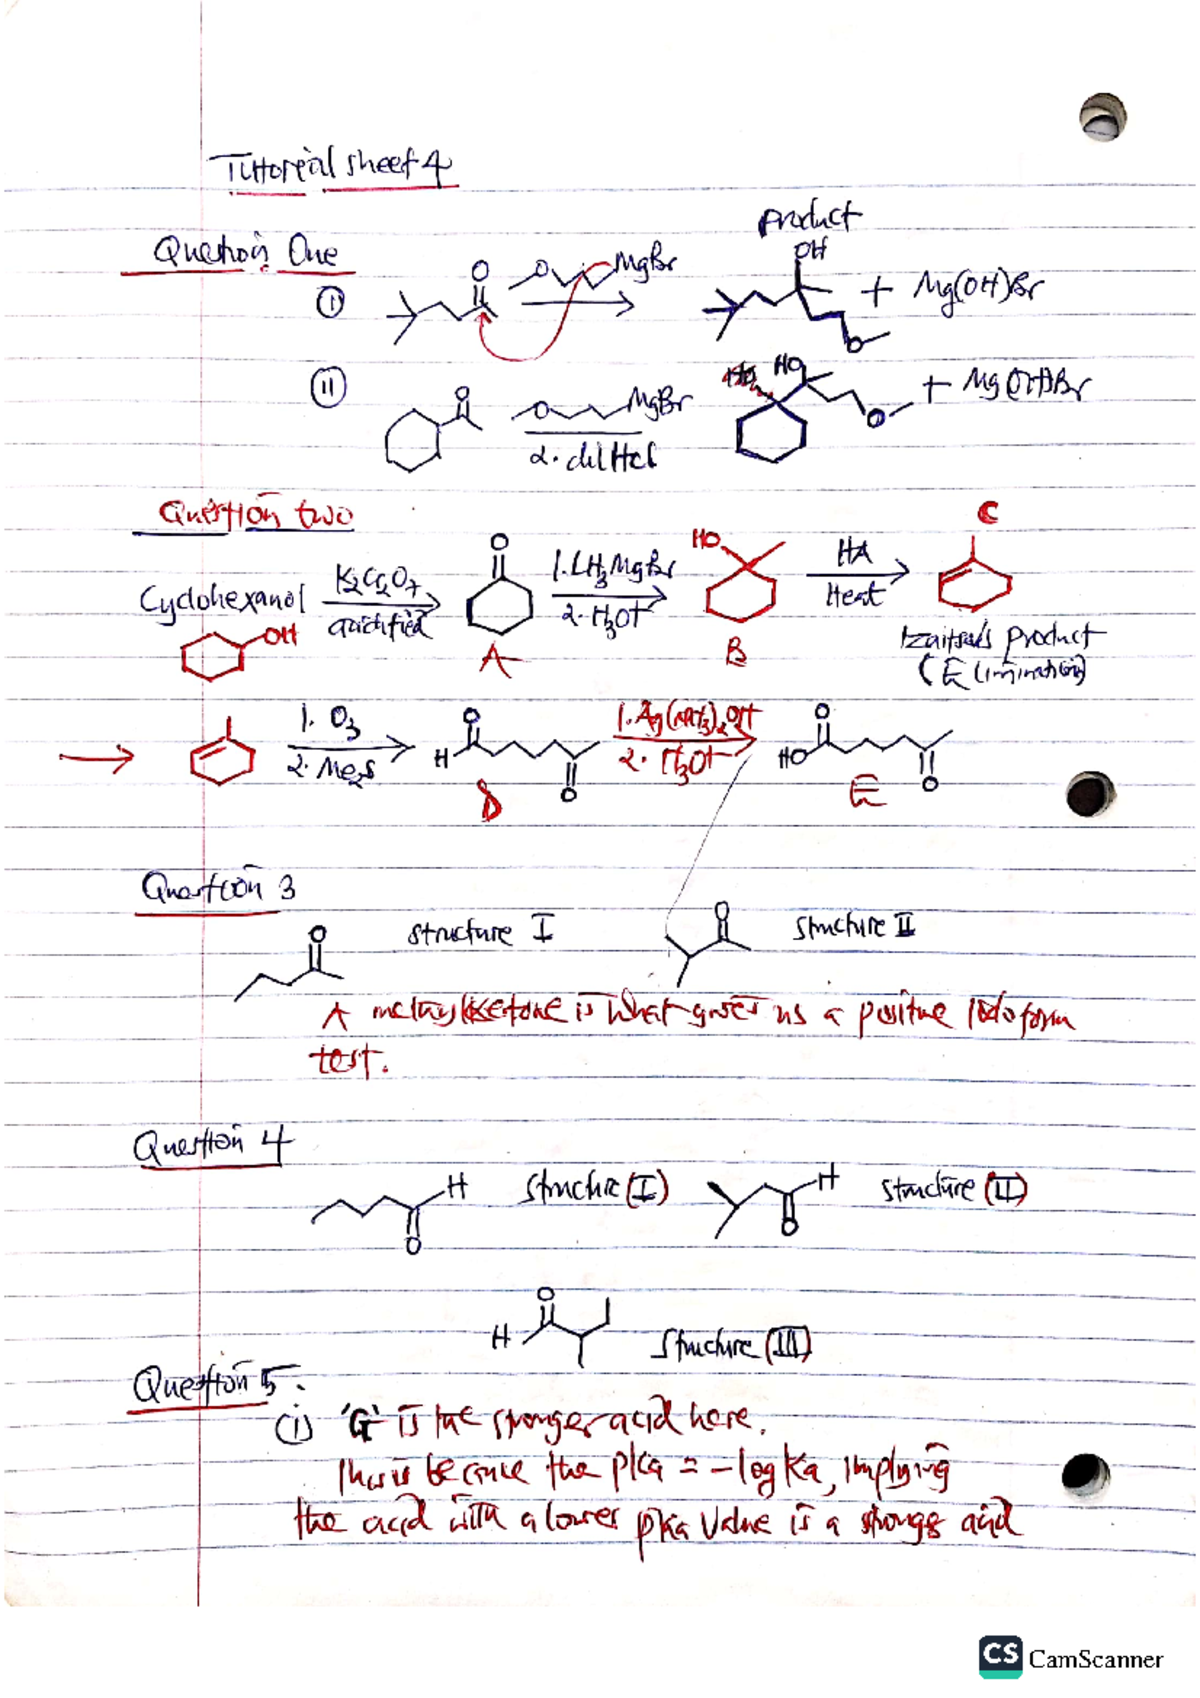 Tutorial sheet 4
Question One
Product
(I) O O MgBr OH + Mg(OH)Br
O
(II) O O MgBr HO O + Mg(OH)Br
2. dil HCl
Question two
C
Cyclohexanol K2Cr2O7 O 1. CH3MgBr HO HA
acidified 2. H3O+ Heat
OH A B Zaitsev's product
(Elimination)
1. O3 O 1. Ag(NH3)2OH O
2. Me2S H O 2. H3O+ HO O
D E
Question 3
O structure I O structure II
A methyl ketone is what gives us a positive Iodoform
test.
Question 4
H O structure (I) H O structure (II)
O H structure (III)
Question 5.
(i) 'G' is the stronger acid here.
This is because the pKa = -log Ka, implying
the acid with a lower pKa value is a stronger acid
CS CamScanner